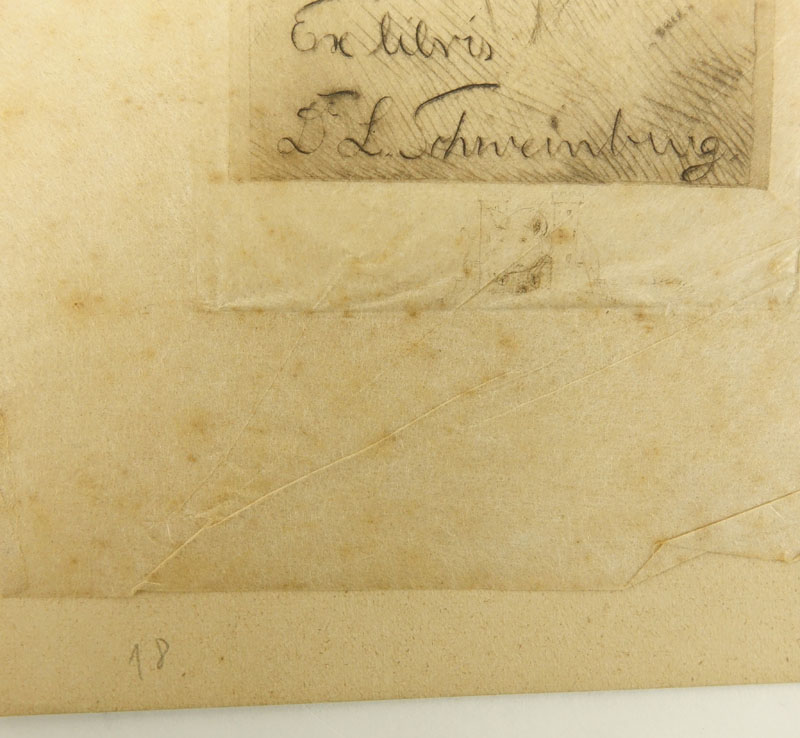 Ex libris
Dr L. Schweinburg.
18